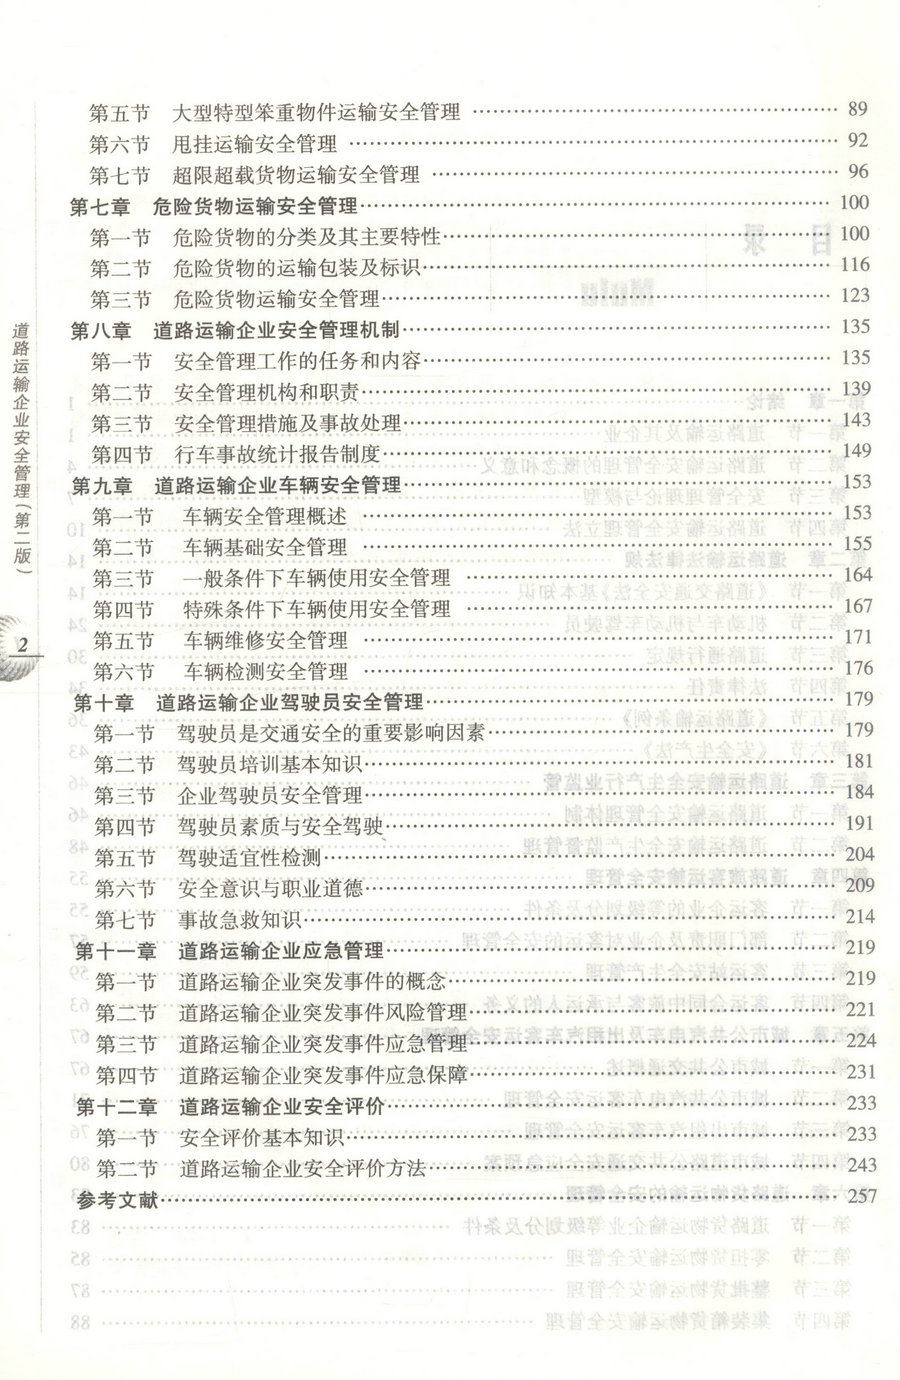 第五节 大型特型笨重物件运输安全管理 …… 89
第六节 甩挂运输安全管理 …… 92
第七节 超限超载货物运输安全管理 …… 96
第七章 危险货物运输安全管理 …… 100
第一节 危险货物的分类及其主要特性 …… 100
第二节 危险货物的运输包装及标识 …… 116
第三节 危险货物运输安全管理 …… 123
第八章 道路运输企业安全管理机制 …… 135
第一节 安全管理工作的任务和内容 …… 135
第二节 安全管理机构和职责 …… 139
第三节 安全管理措施及事故处理 …… 143
第四节 行车事故统计报告制度 …… 149
第九章 道路运输企业车辆安全管理 …… 153
第一节 车辆安全管理概述 …… 153
第二节 车辆基础安全管理 …… 155
第三节 一般条件下车辆使用安全管理 …… 164
第四节 特殊条件下车辆使用安全管理 …… 167
第五节 车辆维修安全管理 …… 171
第六节 车辆检测安全管理 …… 176
第十章 道路运输企业驾驶员安全管理 …… 179
第一节 驾驶员是交通安全的重要影响因素 …… 179
第二节 驾驶员培训基本知识 …… 181
第三节 企业驾驶员安全管理 …… 184
第四节 驾驶员素质与安全驾驶 …… 191
第五节 驾驶适宜性检测 …… 204
第六节 安全意识与职业道德 …… 209
第七节 事故急救知识 …… 214
第十一章 道路运输企业应急管理 …… 219
第一节 道路运输企业突发事件的概念 …… 219
第二节 道路运输企业突发事件风险管理 …… 221
第三节 道路运输企业突发事件应急管理 …… 224
第四节 道路运输企业突发事件应急保障 …… 231
第十二章 道路运输企业安全评价 …… 233
第一节 安全评价基本知识 …… 233
第二节 道路运输企业安全评价方法 …… 243
参考文献 …… 257
道路运输企业安全管理(第二版)
2